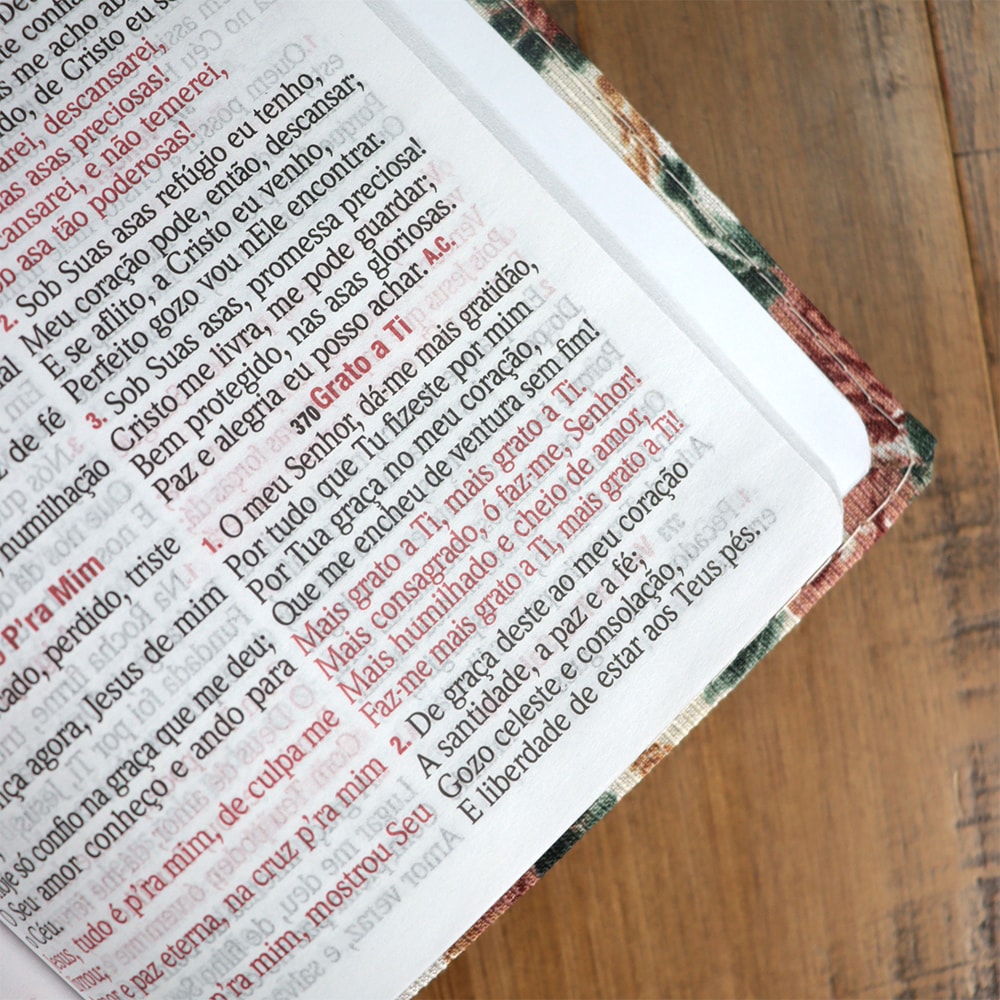 de fé
humilhação
P'ra Mim
perdido, triste
agora, Jesus de mim
só confio na graça que me deu;
O Seu amor conheço e ando para
Céu.
Jesus, tudo é p'ra mim, de culpa me
e paz eterna, na cruz p'ra mim
p'ra mim, mostrou Seu
me acho
de Cristo eu
descansarei,
asas preciosas!
e não temerei,
asa tão poderosas!
2. Sob Suas asas refúgio eu tenho,
Meu coração pode, então, descansar;
E se aflito, a Cristo eu venho,
Perfeito gozo vou nEle encontrar.
3. Sob Suas asas, promessa preciosa!
Cristo me livra, me pode guardar;
Bem protegido, nas asas gloriosas.
Paz e alegria eu posso achar. A.C.
370 Grato a Ti
1. O meu Senhor, dá-me mais gratidão,
Por tudo que Tu fizeste por mim
Por Tua graça no meu coração,
Que me encheu de ventura sem fim!
Mais grato a Ti, mais grato a Ti,
Mais consagrado, ó faz-me, Senhor!
Mais humilhado e cheio de amor,
Faz-me mais grato a Ti, mais grato a Ti!
2. De graça deste ao meu coração
A santidade, a paz e a fé;
Gozo celeste e consolação,
E liberdade de estar aos Teus pés.